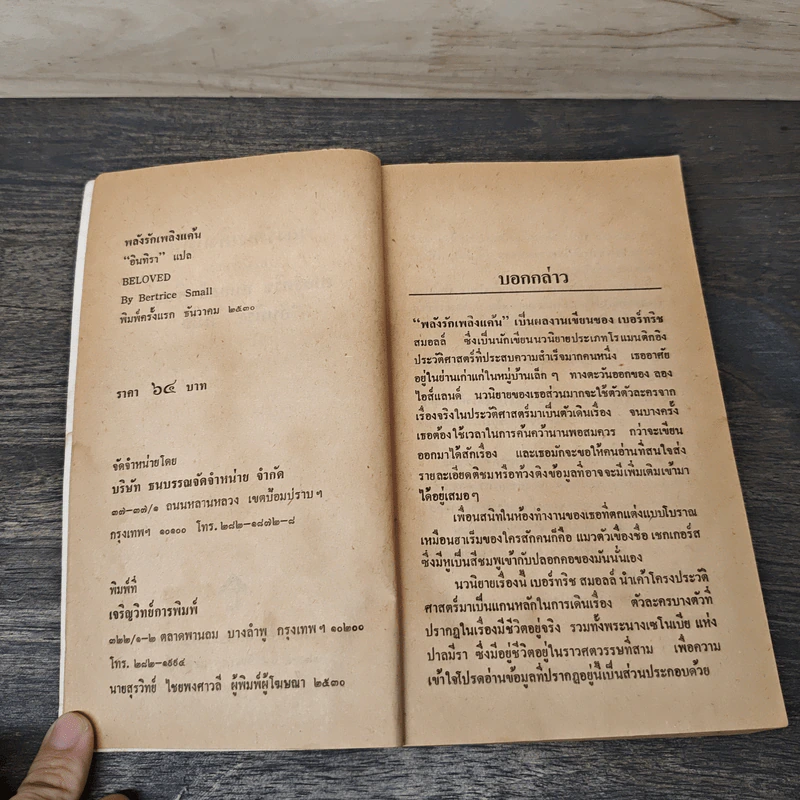 พลังรักเพลิงแค้น
“อินทิรา” แปล
BELOVED
By Bertrice Small
พิมพ์ครั้งแรก ธันวาคม ๒๕๓๐
ราคา ๖๔ บาท
จัดจำหน่ายโดย
บริษัท ธนบรรณจัดจำหน่าย จำกัด
๓๗-๓๗/๑ ถนนหลานหลวง เขตป้อมปราบฯ
กรุงเทพฯ ๑๐๑๐๐ โทร. ๒๘๒-๑๘๗๒-๘
พิมพ์ที่
เจริญวิทย์การพิมพ์
๓๒๒/๑-๒ ตลาดพานถม บางลำพู กรุงเทพฯ ๑๐๒๐๐
โทร. ๒๘๒-๑๙๙๔
นายสุรวิทย์ ไชยพงศาวลี ผู้พิมพ์ผู้โฆษณา ๒๕๓๐
บอกกล่าว
“พลังรักเพลิงแค้น” เป็นผลงานเขียนของ เบอร์ทริช
สมอลล์ ซึ่งเป็นนักเขียนนวนิยายประเภทโรแมนติกอิง
ประวัติศาสตร์ที่ประสบความสำเร็จมากคนหนึ่ง เธออาศัย
อยู่ในย่านเก่าแก่ในหมู่บ้านเล็กๆ ทางตะวันออกของ ลอง
ไอส์แลนด์ นวนิยายของเธอส่วนมากจะใช้ตัวตัวละครจาก
เรื่องจริงในประวัติศาสตร์มาเป็นตัวเดินเรื่อง จนบางครั้ง
เธอต้องใช้เวลาในการค้นคว้านานพอสมควร กว่าจะเขียน
ออกมาได้สักเรื่อง และเธอมักจะขอให้คนอ่านที่สนใจส่ง
รายละเอียดติชมหรือท้วงติงข้อมูลที่อาจจะมีเพิ่มเติมเข้ามา
ได้อยู่เสมอๆ
เพื่อนสนิทในห้องทำงานของเธอที่ตกแต่งแบบโบราณ
เหมือนฮาเร็มของใครสักคนก็คือ แมวตัวเขื่องชื่อ เชกเกอร์ส
ซึ่งมีหูเป็นสีชมพูเข้ากับปลอกคอของมันนั้นเอง
นวนิยายเรื่องนี้ เบอร์ทริช สมอลล์ นำเค้าโครงประวัติ
ศาสตร์มาเป็นแกนหลักในการเดินเรื่อง ตัวละครบางตัวที่
ปรากฏในเรื่องมีชีวิตอยู่จริง รวมทั้งพระนางเซโนเบีย แห่ง
ปาลมีรา ซึ่งมีอยู่ชีวิตอยู่ในราวศตวรรษที่สาม เพื่อความ
เข้าใจโปรดอ่านข้อมูลที่ปรากฏอยู่นี้เป็นส่วนประกอบด้วย